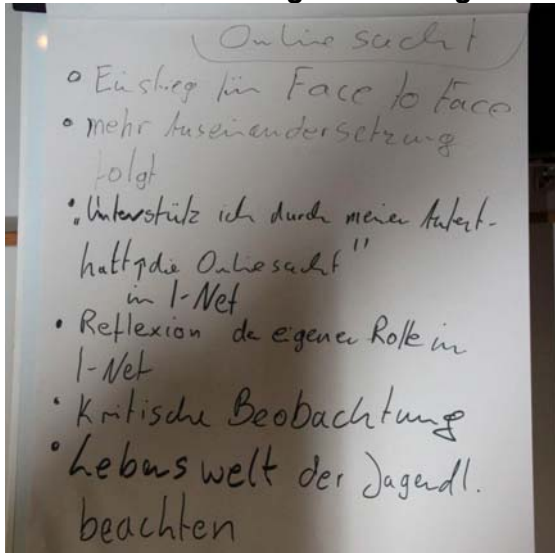 Onlinesucht
• Einstieg für Face to Face
• mehr Auseinandersetzung
folgt
• "Unterstütz ich durch meinen Aufent-
halt die Onlinesucht"
in I-Net
• Reflexion der eigenen Rolle im
I-Net
• Kritische Beobachtung
• Lebenswelt der Jugendl.
beachten